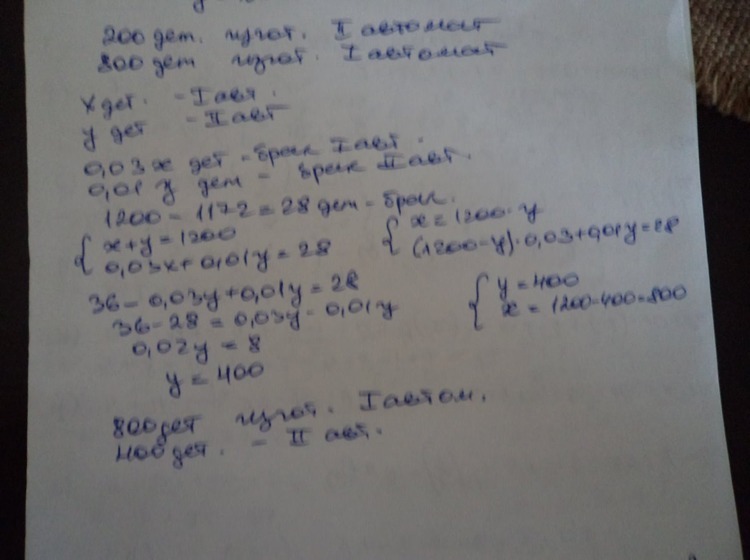 200 дет. изгот. II автомат
800 дет изгот. I автомат
x дет. - I авт.
y дет - II авт
0,03x дет - брак I авт.
0,01y дет - брак II авт.
1200 - 1172 = 28 дет - брак.
{ x + y = 1200
0,03x + 0,01y = 28
{ x = 1200 - y
(1200 - y) · 0,03 + 0,01y = 28
36 - 0,03y + 0,01y = 28
36 - 28 = 0,03y - 0,01y
0,02y = 8
y = 400
{ y = 400
x = 1200 - 400 = 800
800 дет изгот. I автом.
400 дет. - II авт.